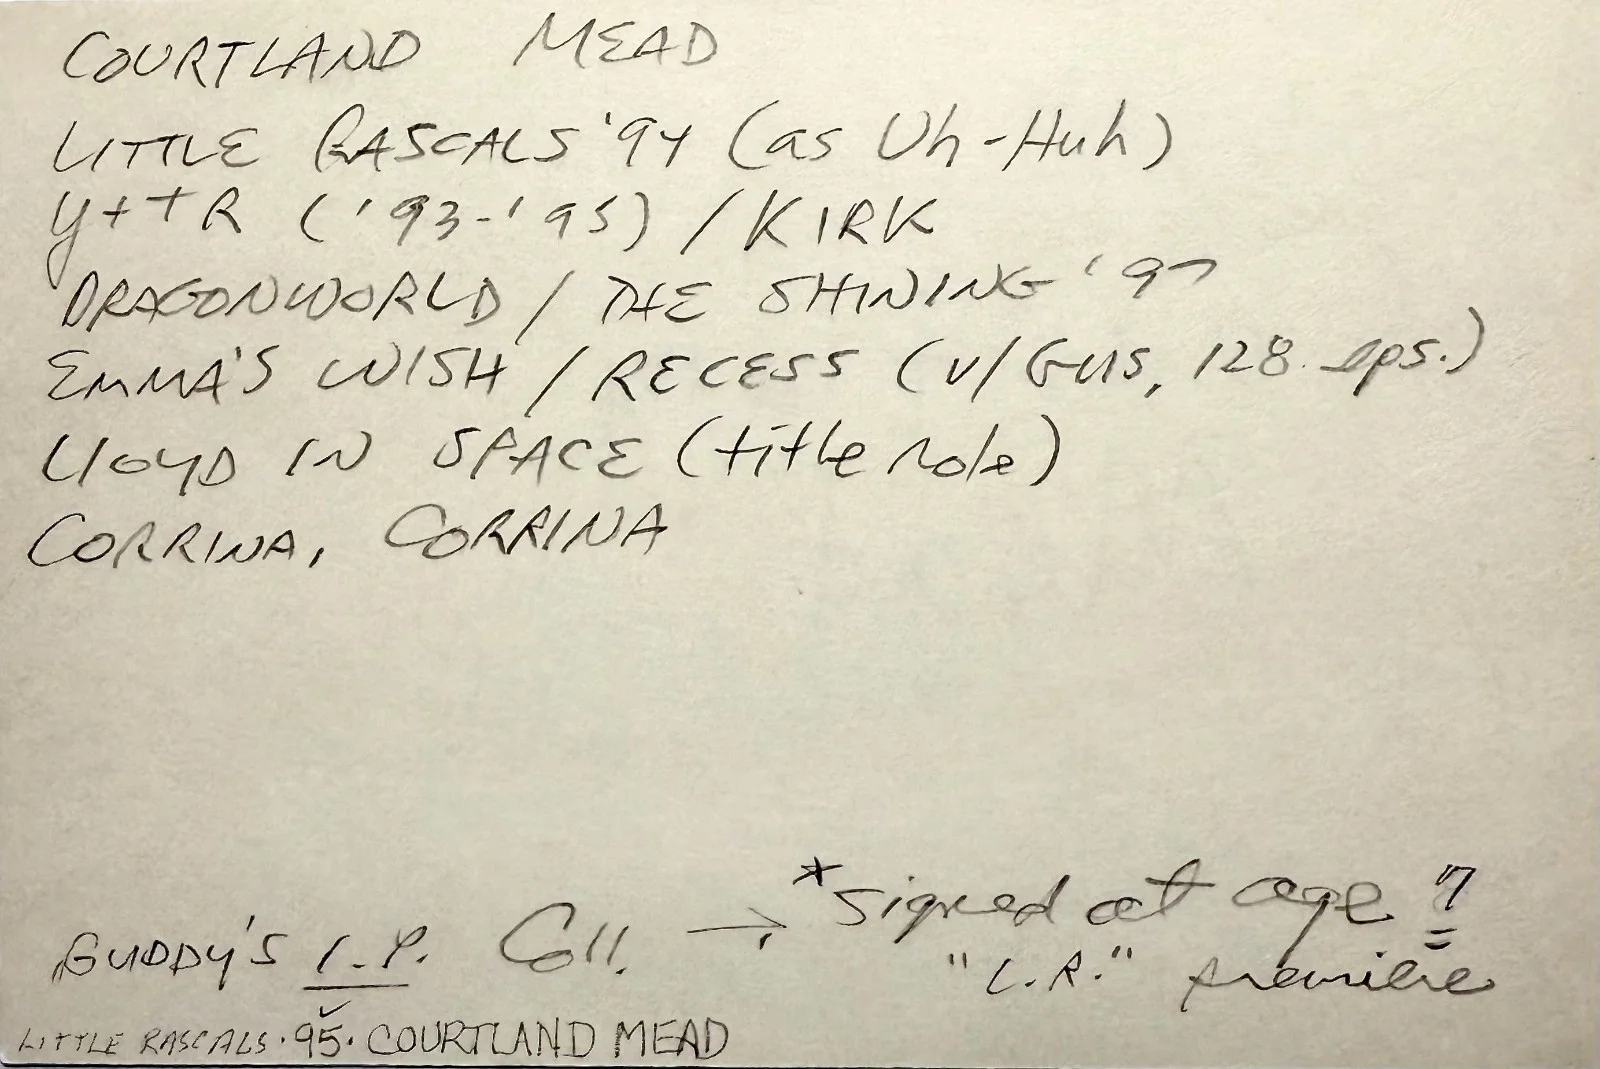 COURTLAND MEAD
LITTLE RASCALS '94 (as Uh-Huh)
Y+TR ('93-'95) / KIRK
DRAGONWORLD / THE SHINING '97
EMMA'S WISH / RECESS (v/Gus, 128 eps.)
LLOYD IN SPACE (title role)
CORRINA, CORRINA
*signed at age 7
BUDDY'S I.P. Coll. → "L.R." premiere
LITTLE RASCALS · 95 · COURTLAND MEAD